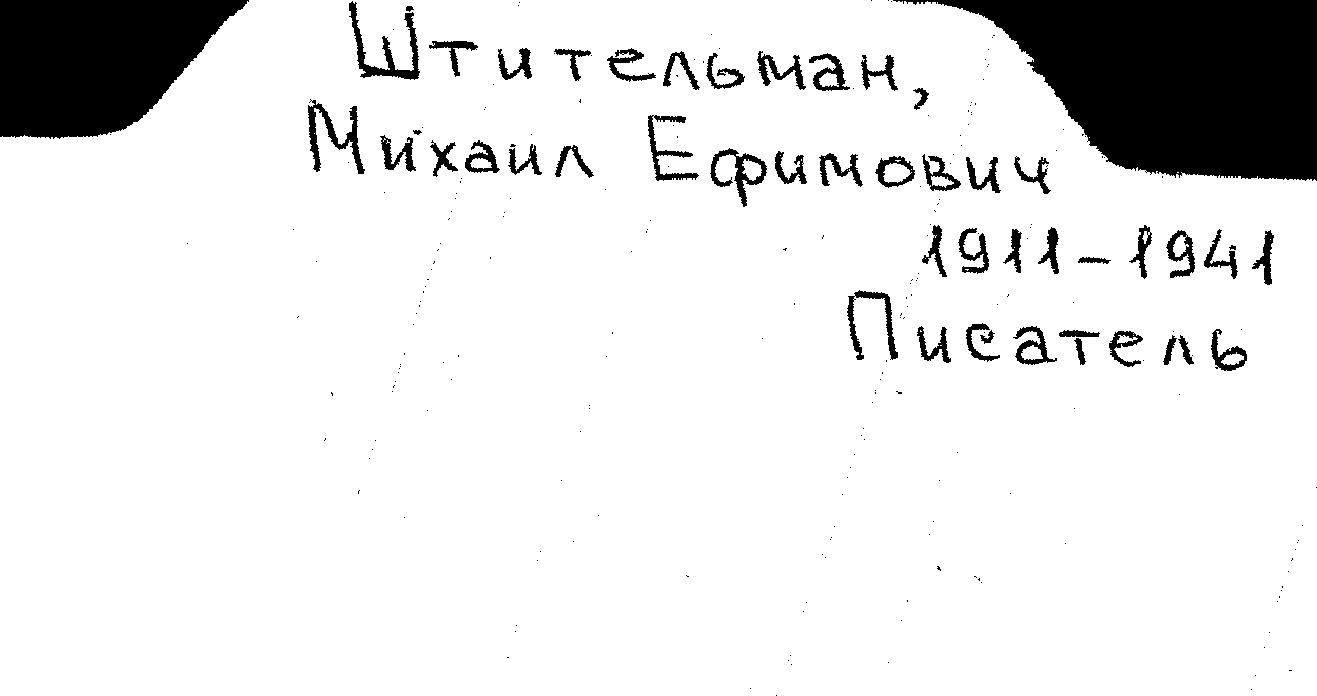 Штительман,
Михаил Ефимович
1911-1941
Писатель